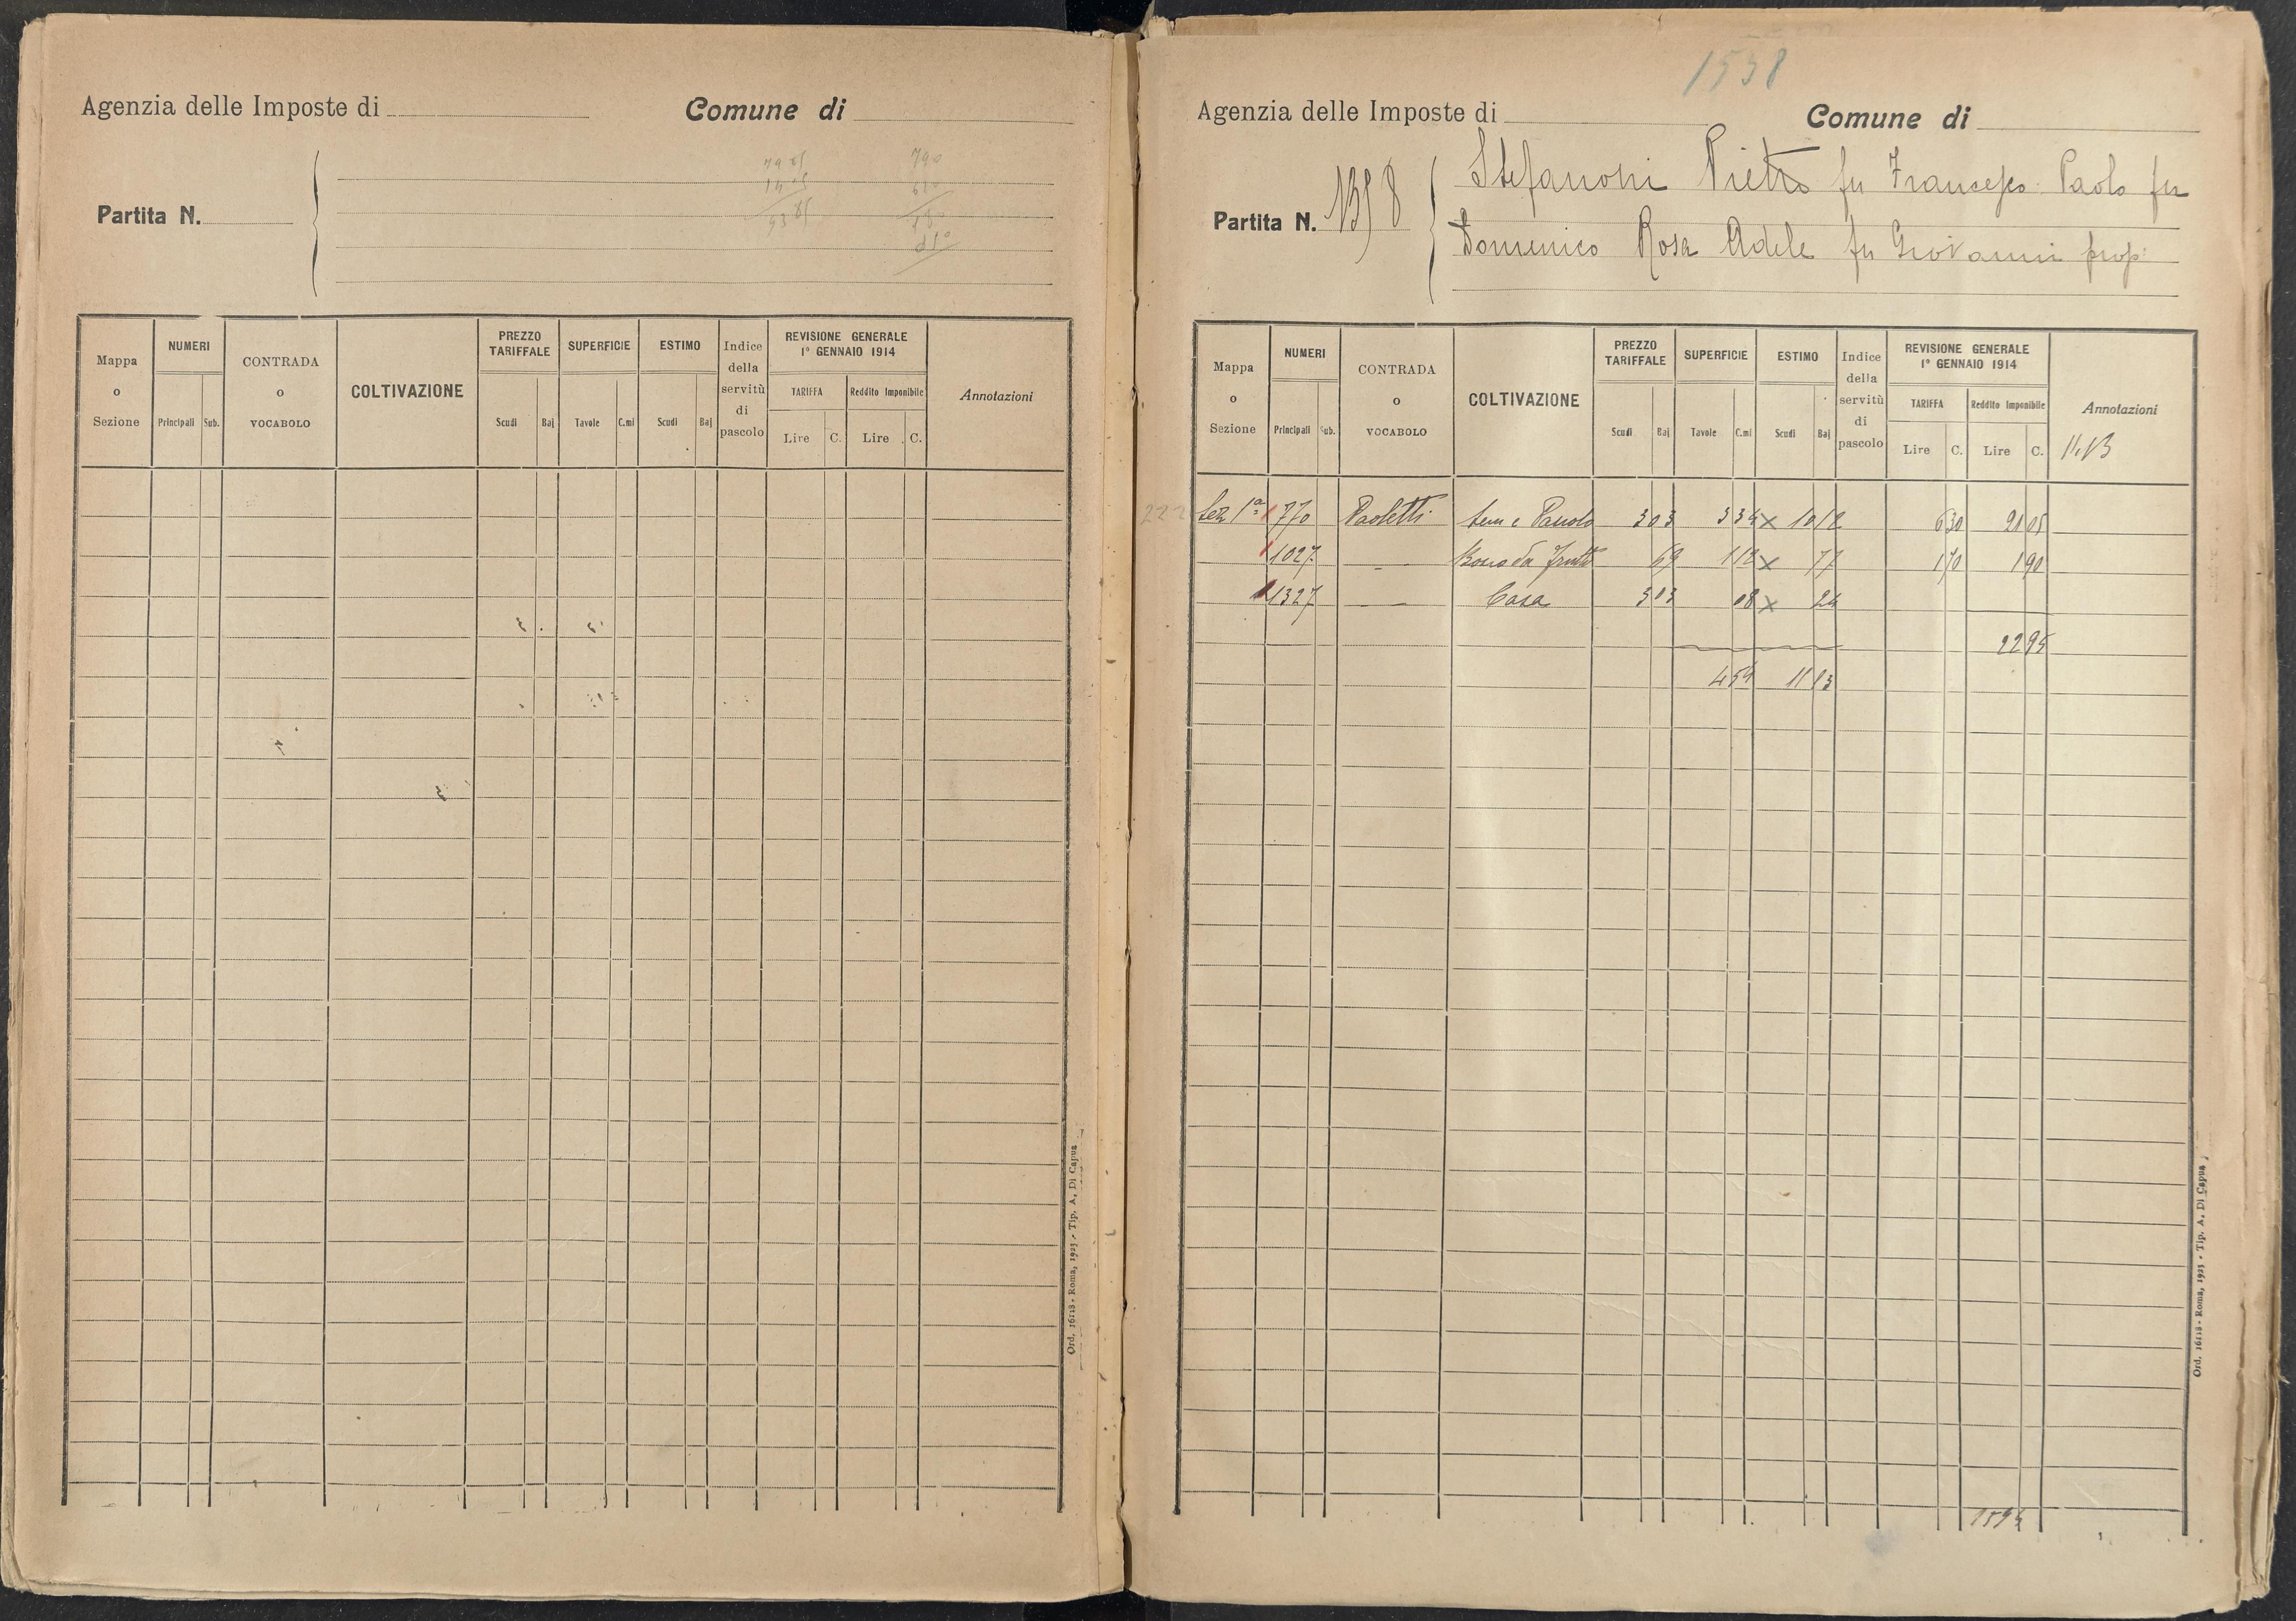 Agenzia delle Imposte di Comune di
Partita N.
790
Mappa o Sezione
NUMERI
Principali Sub.
CONTRADA o VOCABOLO
COLTIVAZIONE
PREZZO TARIFFALE
Scudi Baj
SUPERFICIE
Tavole C.mi
ESTIMO
Scudi Baj
Indice della servitù di pascolo
REVISIONE GENERALE 1° GENNAIO 1914
TARIFFA
Lire C.
Reddito Imponibile
Lire C.
Annotazioni
Ord. 16118 - Roma, 1925 - Tip. A. Di Capua
1558
Agenzia delle Imposte di Comune di
Partita N. 1358
Stefanoni Pietro fu Francesco Paolo fu
Domenico Rosa Adele fu Giovanni prop:
Mappa o Sezione
NUMERI
Principali Sub.
CONTRADA o VOCABOLO
COLTIVAZIONE
PREZZO TARIFFALE
Scudi Baj
SUPERFICIE
Tavole C.mi
ESTIMO
Scudi Baj
Indice della servitù di pascolo
REVISIONE GENERALE 1° GENNAIO 1914
TARIFFA
Lire C.
Reddito Imponibile
Lire C.
Annotazioni
11,13
222 Sez 1ª 770 Paoletti Sem e 303 334 x 10 12 630 21 05
1027 — Bosco da frutto 69 112 x 77 170 1 90
1327 — Casa 303 08 x 24
22 95
4 54 11 13
Ord. 16118 - Roma, 1925 - Tip. A. Di Capua